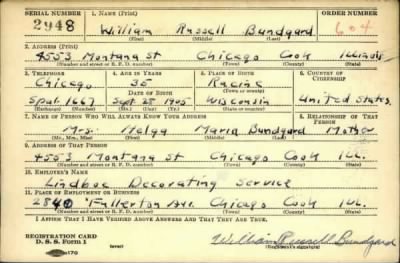 SERIAL NUMBER 1. NAME (Print) ORDER NUMBER
2948 William Russell Bundgard 604
(First) (Middle) (Last)
2. ADDRESS (Print)
4553 Montana St Chicago Cook Illinois
(Number and street or R. F. D. number) (Town) (County) (State)
3. TELEPHONE 4. AGE IN YEARS 5. PLACE OF BIRTH 6. COUNTRY OF CITIZENSHIP
Chicago 35 Racine
DATE OF BIRTH
Spal. 1667 Sept 28 1905 Wisconsin United States
7. NAME OF PERSON WHO WILL ALWAYS KNOW YOUR ADDRESS 8. RELATIONSHIP OF THAT PERSON
Mrs. Helga Maria Bundgard Mother
(Mr., Mrs., Miss) (First) (Middle) (Last)
9. ADDRESS OF THAT PERSON
4553 Montana St Chicago Cook Ill.
(Number and street or R. F. D. number) (Town) (County) (State)
10. EMPLOYER'S NAME
Lindboe Decorating Service
11. PLACE OF EMPLOYMENT OR BUSINESS
2840 Fullerton Ave. Chicago Cook Ill.
(Number and street or R. F. D. number) (Town) (County) (State)
I AFFIRM THAT I HAVE VERIFIED ABOVE ANSWERS AND THAT THEY ARE TRUE.
REGISTRATION CARD
D. S. S. Form 1 (over) William Russell Bundgard